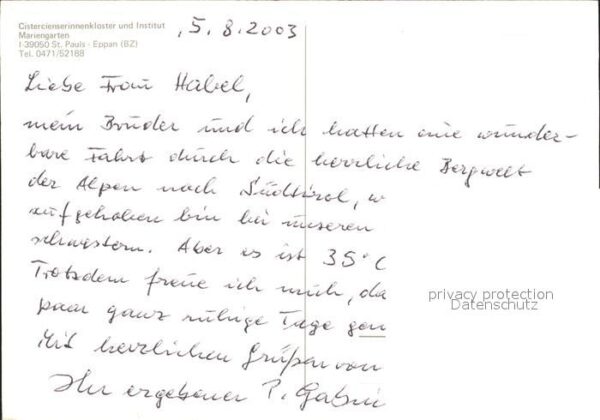 Cistercienserinnenkloster und Institut
Mariengarten
I-39050 St. Pauls - Eppan (BZ)
Tel. 0471/52188
, 5. 8. 2003
Liebe Frau Habel,
mein Bruder und ich hatten eine wunder-
bare Fahrt durch die herrliche Bergwelt
der Alpen nach Südtirol, w
aufgehoben bin bei unseren
schwestern. Aber es ist 35°C
Trotzdem freue ich mich, da
paar ganz ruhige Tage gen
Mit herzlichen Grüßen von
Ihr ergebener P.
privacy protection
Datenschutz